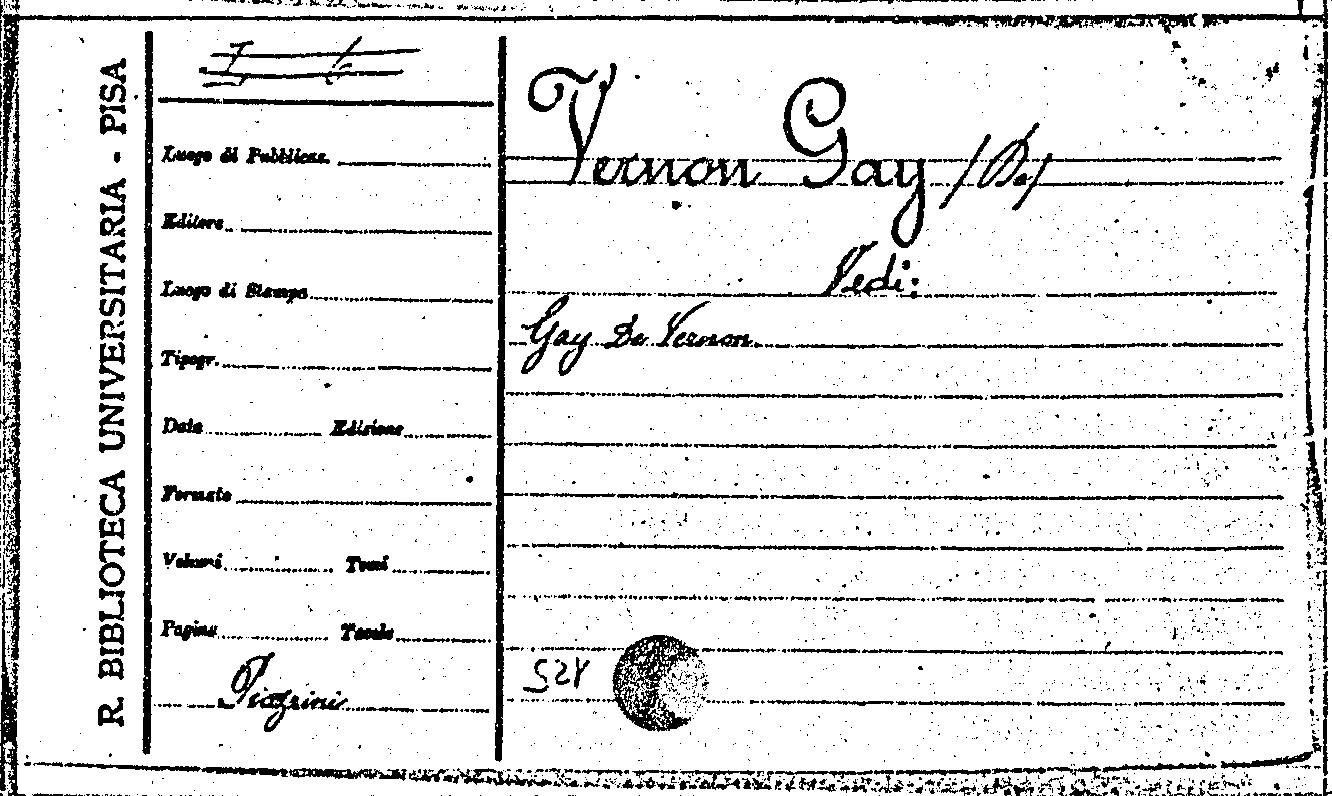 R. BIBLIOTECA UNIVERSITARIA - PISA
Luogo di Pubblicaz.
Editore
Luogo di Stampa
Tipogr.
Data Edizione
Formato
Volumi Tomi
Pagine Tavole
Vernon Gay /De/
Vedi:
Gay De Vernon